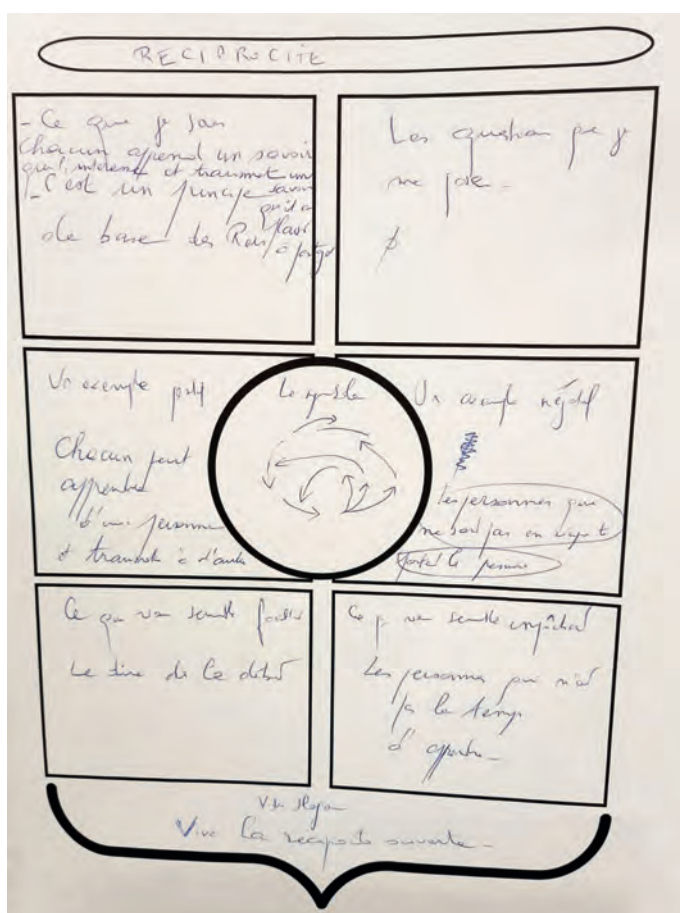 RECIPROCITE
- Ce que je sais
Chacun apprend un savoir
qui l'intéresse et transmet un
savoir
- C'est un principe
qu'il a
de base des
à partager
Les question que je
me pose -
Un exemple
Chacun peut
apprendre
d'une personne
et transmet à d'autres
Le symbole
Un exemple négatif
Les personnes que
ne sont pas en
Ce que vous semble
Le dire de
Ce q vous semble empêcher
Les personnes qui n'ont
pas le temps
d'apprendre -
Votre slogan
Vive la réciprocité ouverte -